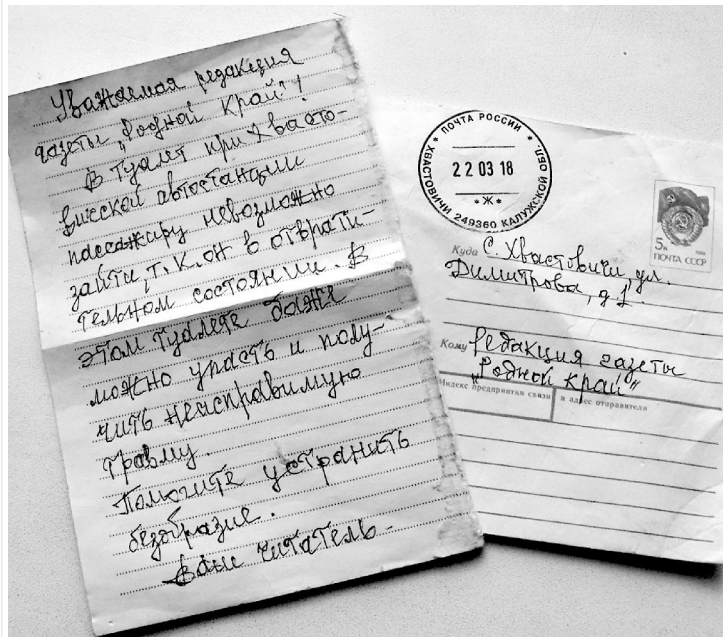 Уважаемая редакция
газеты „Родной край"!
В туалет при Хвасто-
вичской автостанции
пассажиру невозможно
зайти, т.к. он в отврати-
тельном состоянии. В
этом туалете даже
можно упасть и полу-
чить неисправимую
травму.
Помогите устранить
безобразие.
Ваш читатель.
* ПОЧТА РОССИИ *
ХВАСТОВИЧИ 249360 КАЛУЖСКОЙ ОБЛ.
22 03 18
*Ж*
5к
ПОЧТА СССР
Куда С. Хвастовичи ул.
Димитрова, д.1.
Кому Редакция газеты
„Родной край"
Индекс предприятия связи и адрес отправителя